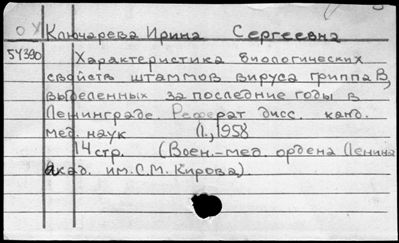 ОУ Ключарева Ирина Сергеевна
54390 Характеристика биологических
свойств штаммов вируса гриппа В,
выделенных за последние годы в
Ленинграде. Реферат дисс. канд.
мед. наук Л., 1958
14 стр. (Воен.-мед. ордена Ленина
Акад. им. С.М. Кирова).